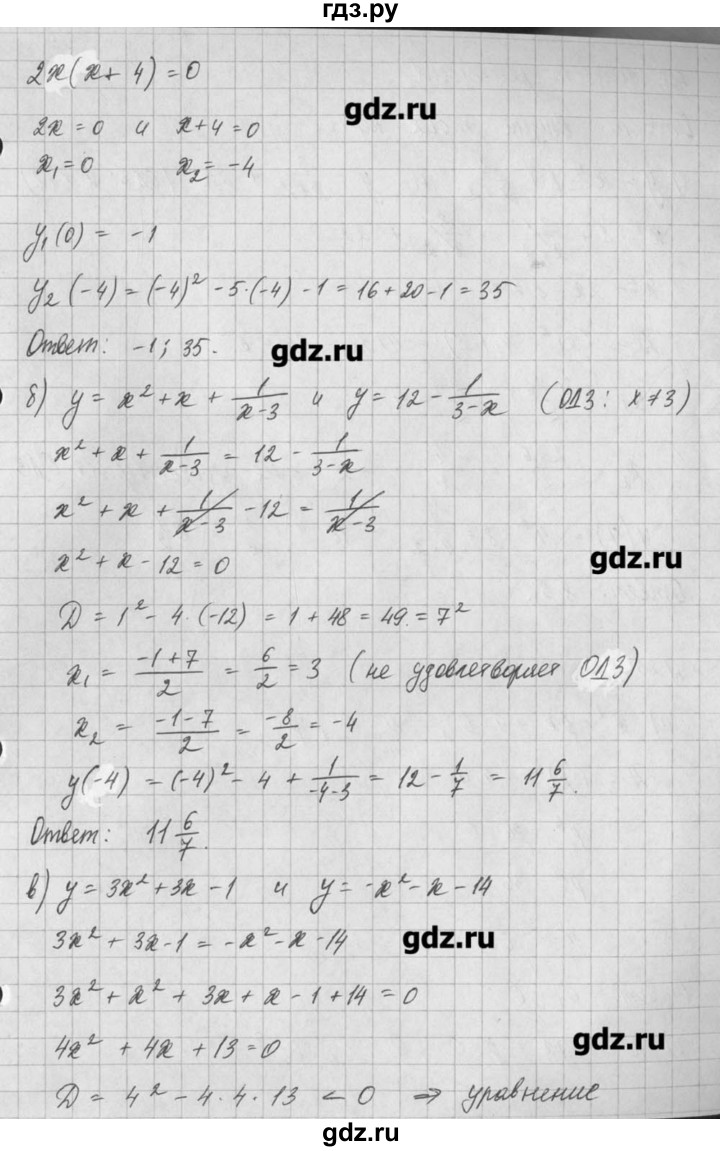 гдз.ру
2x(x+4)=0
2x=0 и x+4=0
gdz.ru
x₁=0 x₂=-4
y₁(0) = -1
y₂(-4)=(-4)²-5·(-4)-1=16+20-1=35
Ответ: -1; 35.
gdz.ru
б) y=x²+x+1/(x-3) и y=12-1/(3-x) (ОДЗ: x≠3)
x²+x+1/(x-3) = 12-1/(3-x)
x²+x+1/(x-3)-12=1/(x-3)
gdz.ru
x²+x-12=0
D=1²-4·(-12)=1+48=49=7²
x₁ = (-1+7)/2 = 6/2 = 3 (не удовлетворяет ОДЗ)
x₂ = (-1-7)/2 = -8/2 = -4
y(-4) = (-4)²-4+1/(-4-3) = 12-1/7 = 11 6/7.
Ответ: 11 6/7.
в) y=3x²+3x-1 и y=-x²-x-14
3x²+3x-1=-x²-x-14
gdz.ru
3x²+x²+3x+x-1+14=0
4x²+4x+13=0
gdz.ru
D=4²-4·4·13<0 ⇒ уравнение
gdz.ru